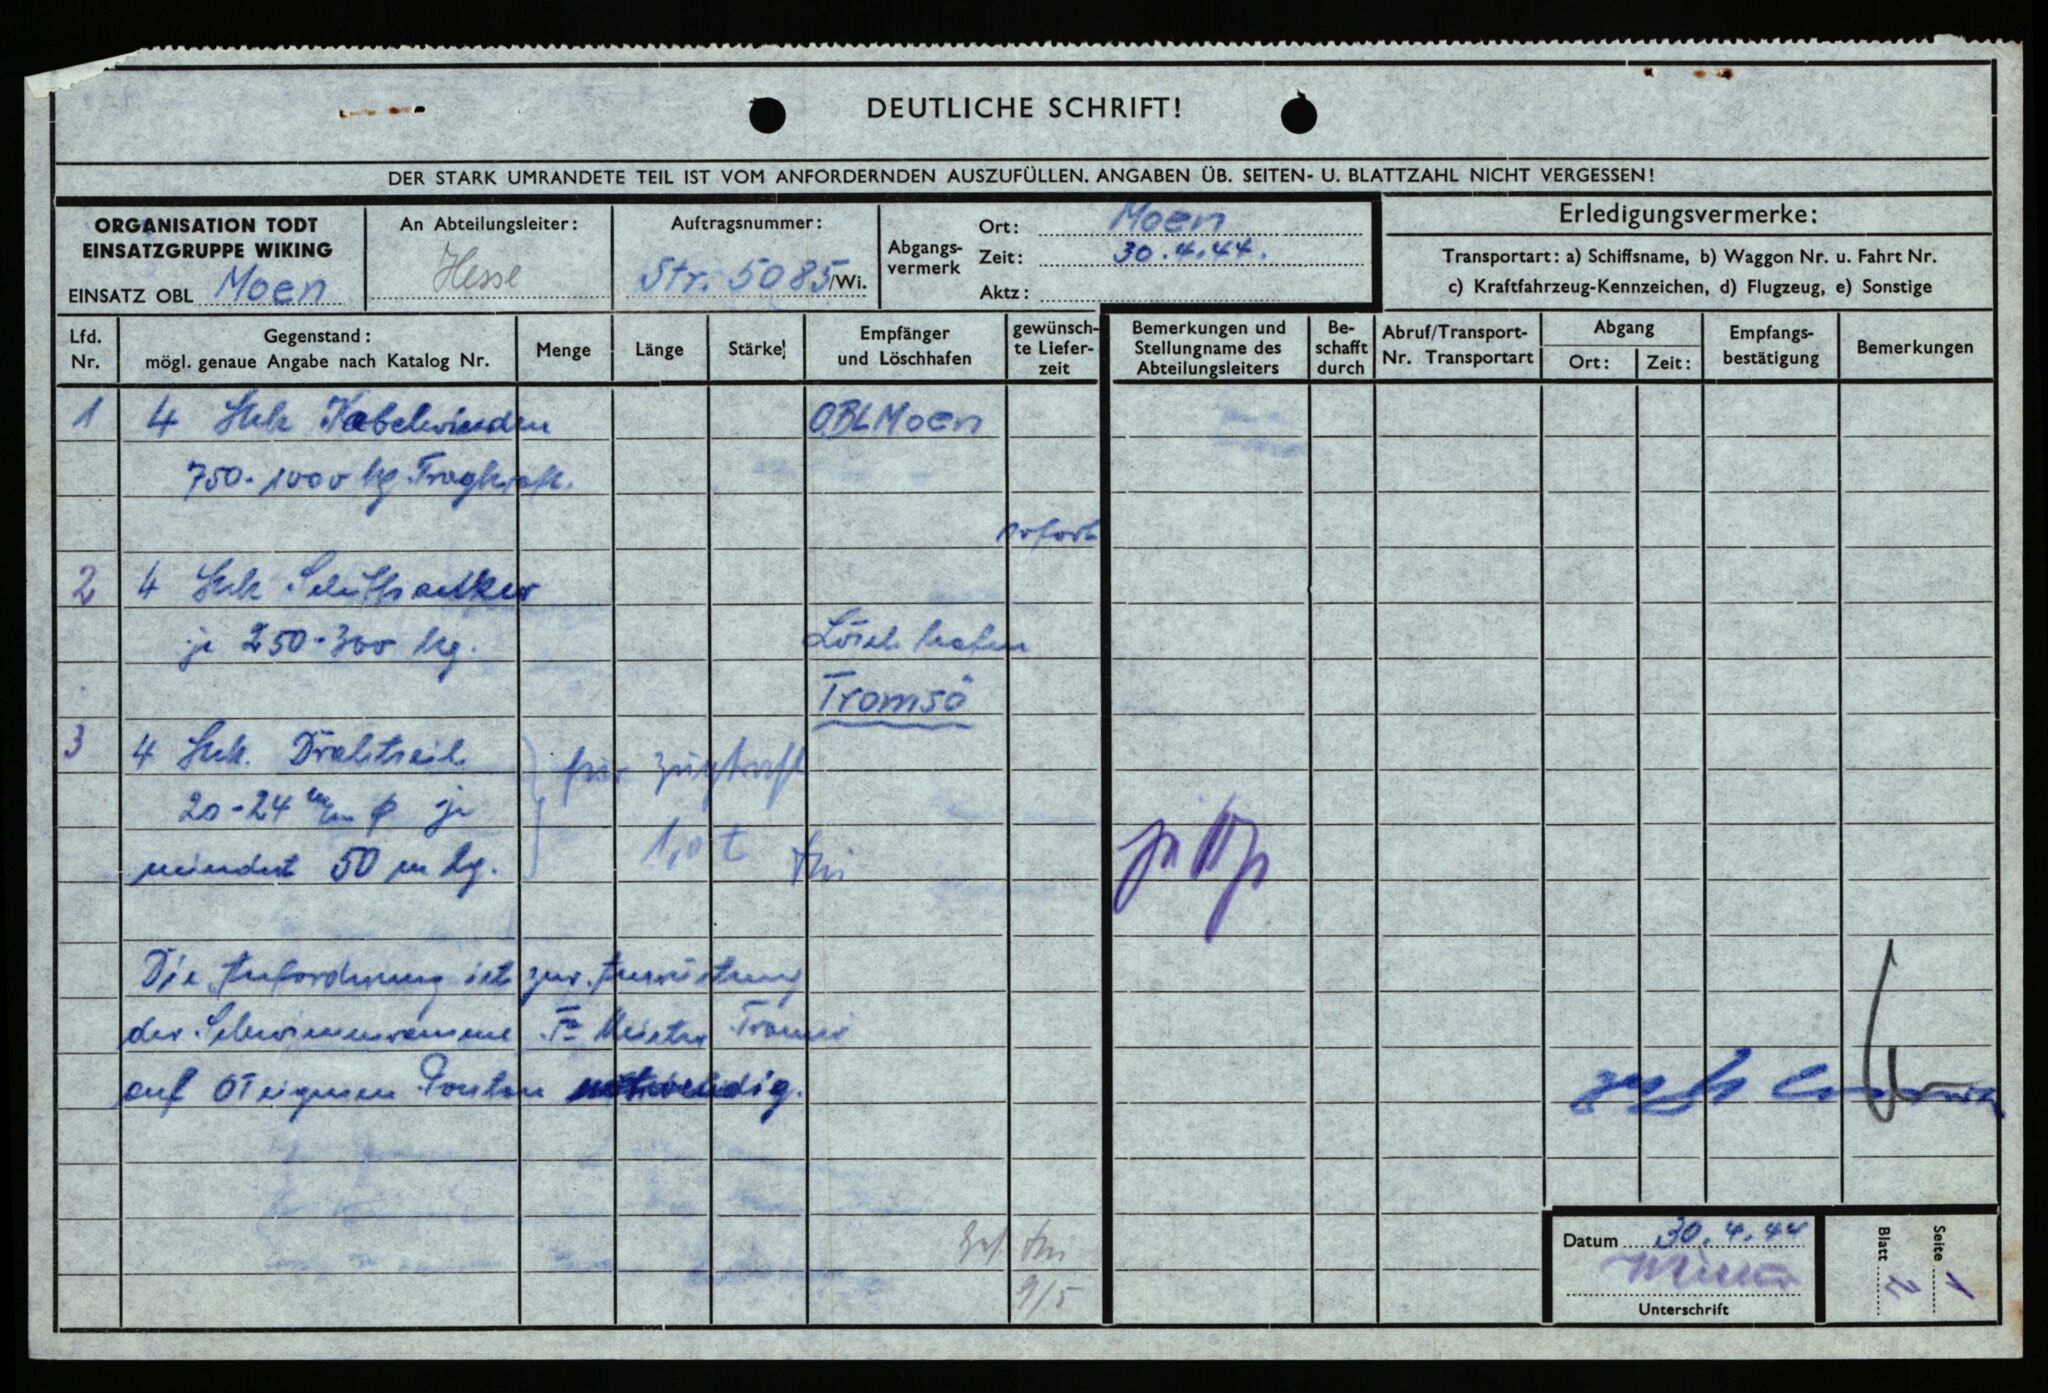 DEUTLICHE SCHRIFT!
DER STARK UMRANDETE TEIL IST VOM ANFORDERNDEN AUSZUFÜLLEN. ANGABEN ÜB. SEITEN- U. BLATTZAHL NICHT VERGESSEN!
ORGANISATION TODT
EINSATZGRUPPE WIKING
EINSATZ OBL Moen
An Abteilungsleiter:
Hesse
Auftragsnummer:
Str. 5085/Wi.
Abgangs-
vermerk
Ort: Moen
Zeit: 30.4.44.
Aktz:
Erledigungsvermerke:
Transportart: a) Schiffsname, b) Waggon Nr. u. Fahrt Nr.
c) Kraftfahrzeug-Kennzeichen, d) Flugzeug, e) Sonstige
Lfd.
Nr.
Gegenstand:
mögl. genaue Angabe nach Katalog Nr.
Menge
Länge
Stärke
Empfänger
und Löschhafen
gewünsch-
te Liefer-
zeit
Bemerkungen und
Stellungname des
Abteilungsleiters
Be-
schafft
durch
Abruf/Transport-
Nr. Transportart
Abgang
Ort:
Zeit:
Empfangs-
bestätigung
Bemerkungen
1 4 Stck Kabelwinden OBL Moen
750-1000 kg Tragkraft.
sofort
2 4 Stck Schiffsanker
je 250-300 kg. Löschhafen
Tromsö
3 4 Stck. Drahtseile für Zugkraft
20-24 m/m ø je
mindest 50 m lg. 1,0 t
Die Anfordnung ist zur Ausrüstung
der Schwimmramme Fa Meister Tromsö
auf OT eigenen Ponton notwendig.
9/5
Datum 30.4.44
Unterschrift
Seite 1
Blatt 2